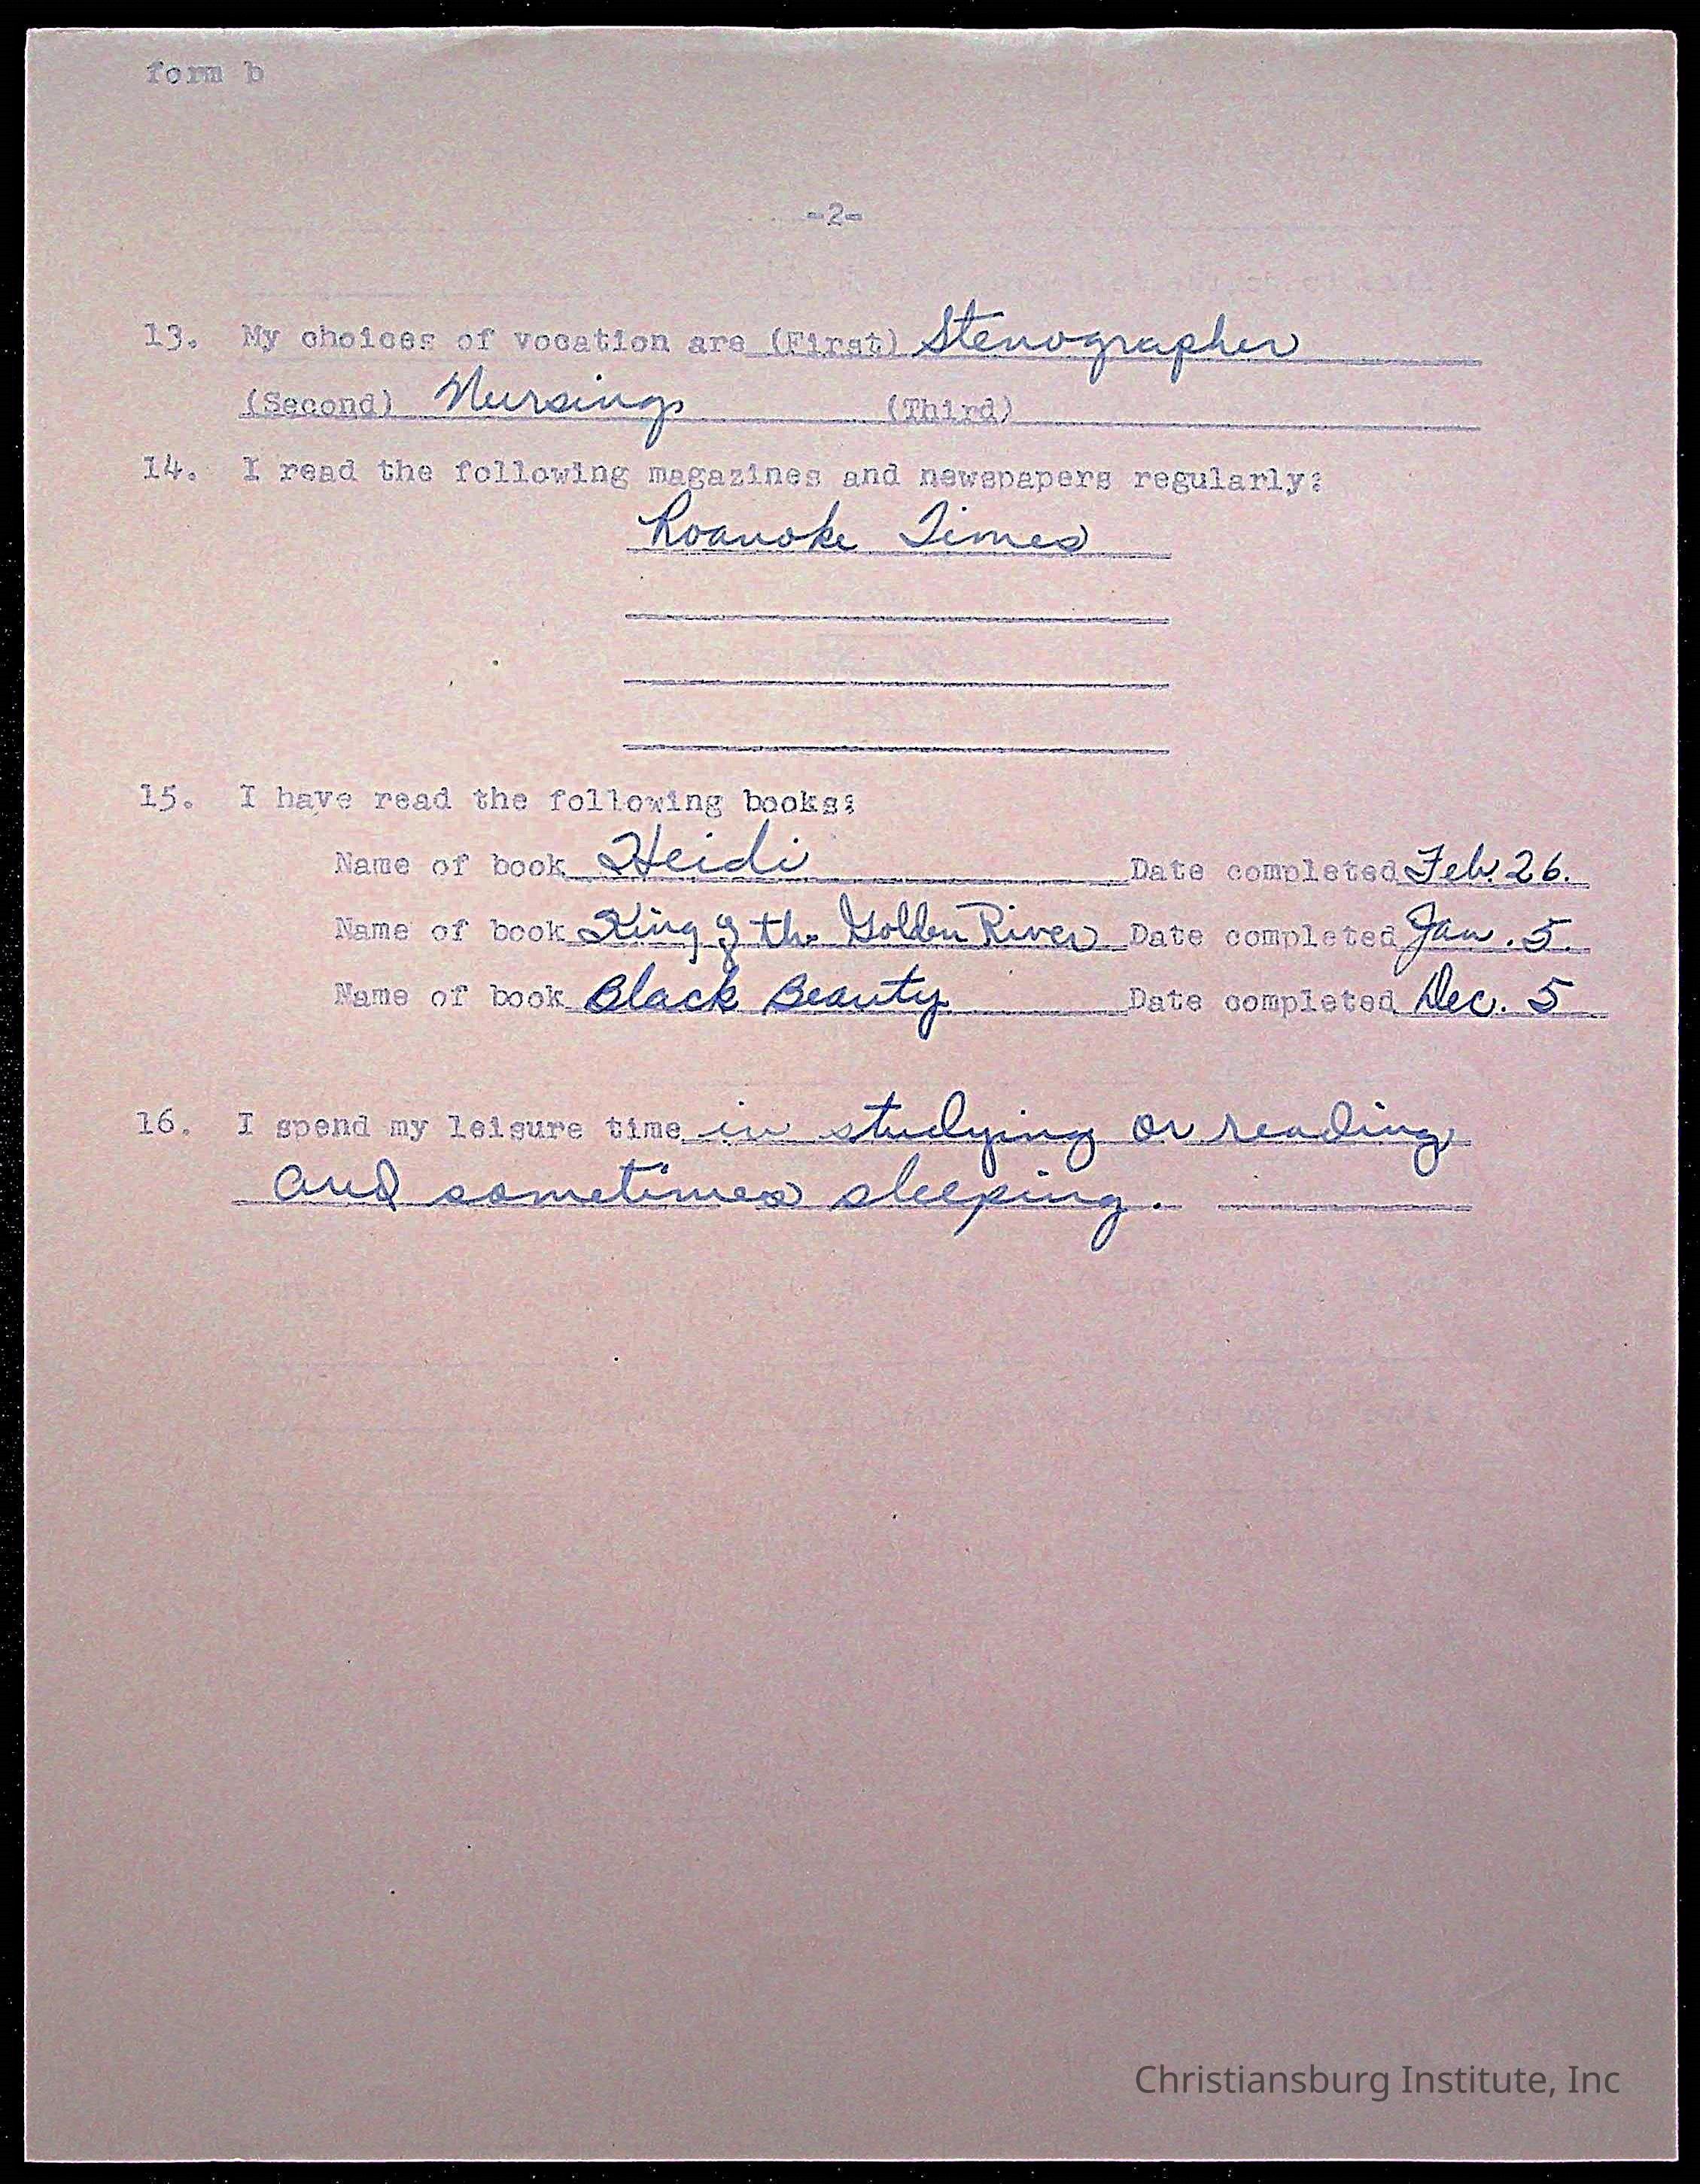 form b
-2-
13. My choices of vocation are (First) Stenographer
(Second) Nursing (Third)
14. I read the following magazines and newspapers regularly:
Roanoke Times
15. I have read the following books:
Name of book Heidi Date completed Feb. 26.
Name of book King of the Golden River Date completed Jan. 5.
Name of book Black Beauty Date completed Dec. 5
16. I spend my leisure time in studying or reading
and sometimes sleeping.
Christiansburg Institute, Inc